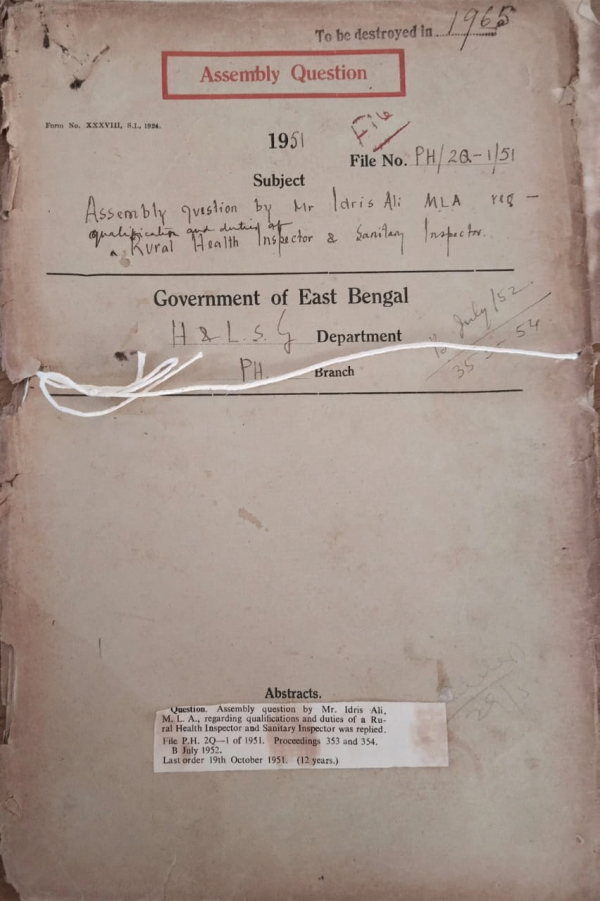 To be destroyed in 1965
Assembly Question
Form No. XXXVIII, S.I., 1924.
File
1951
File No. PH/2Q-1/51
Subject
Assembly question by Mr Idris Ali MLA reg -
qualification and duties of
a Rural Health Inspector & Sanitary Inspector.
Government of East Bengal
H & L. S. G Department
PH. Branch
B July/52
Abstracts.
Question. Assembly question by Mr. Idris Ali,
M. L. A., regarding qualifications and duties of a Ru-
ral Health Inspector and Sanitary Inspector was replied.
File P.H. 2Q—1 of 1951. Proceedings 353 and 354.
B July 1952.
Last order 19th October 1951. (12 years.)